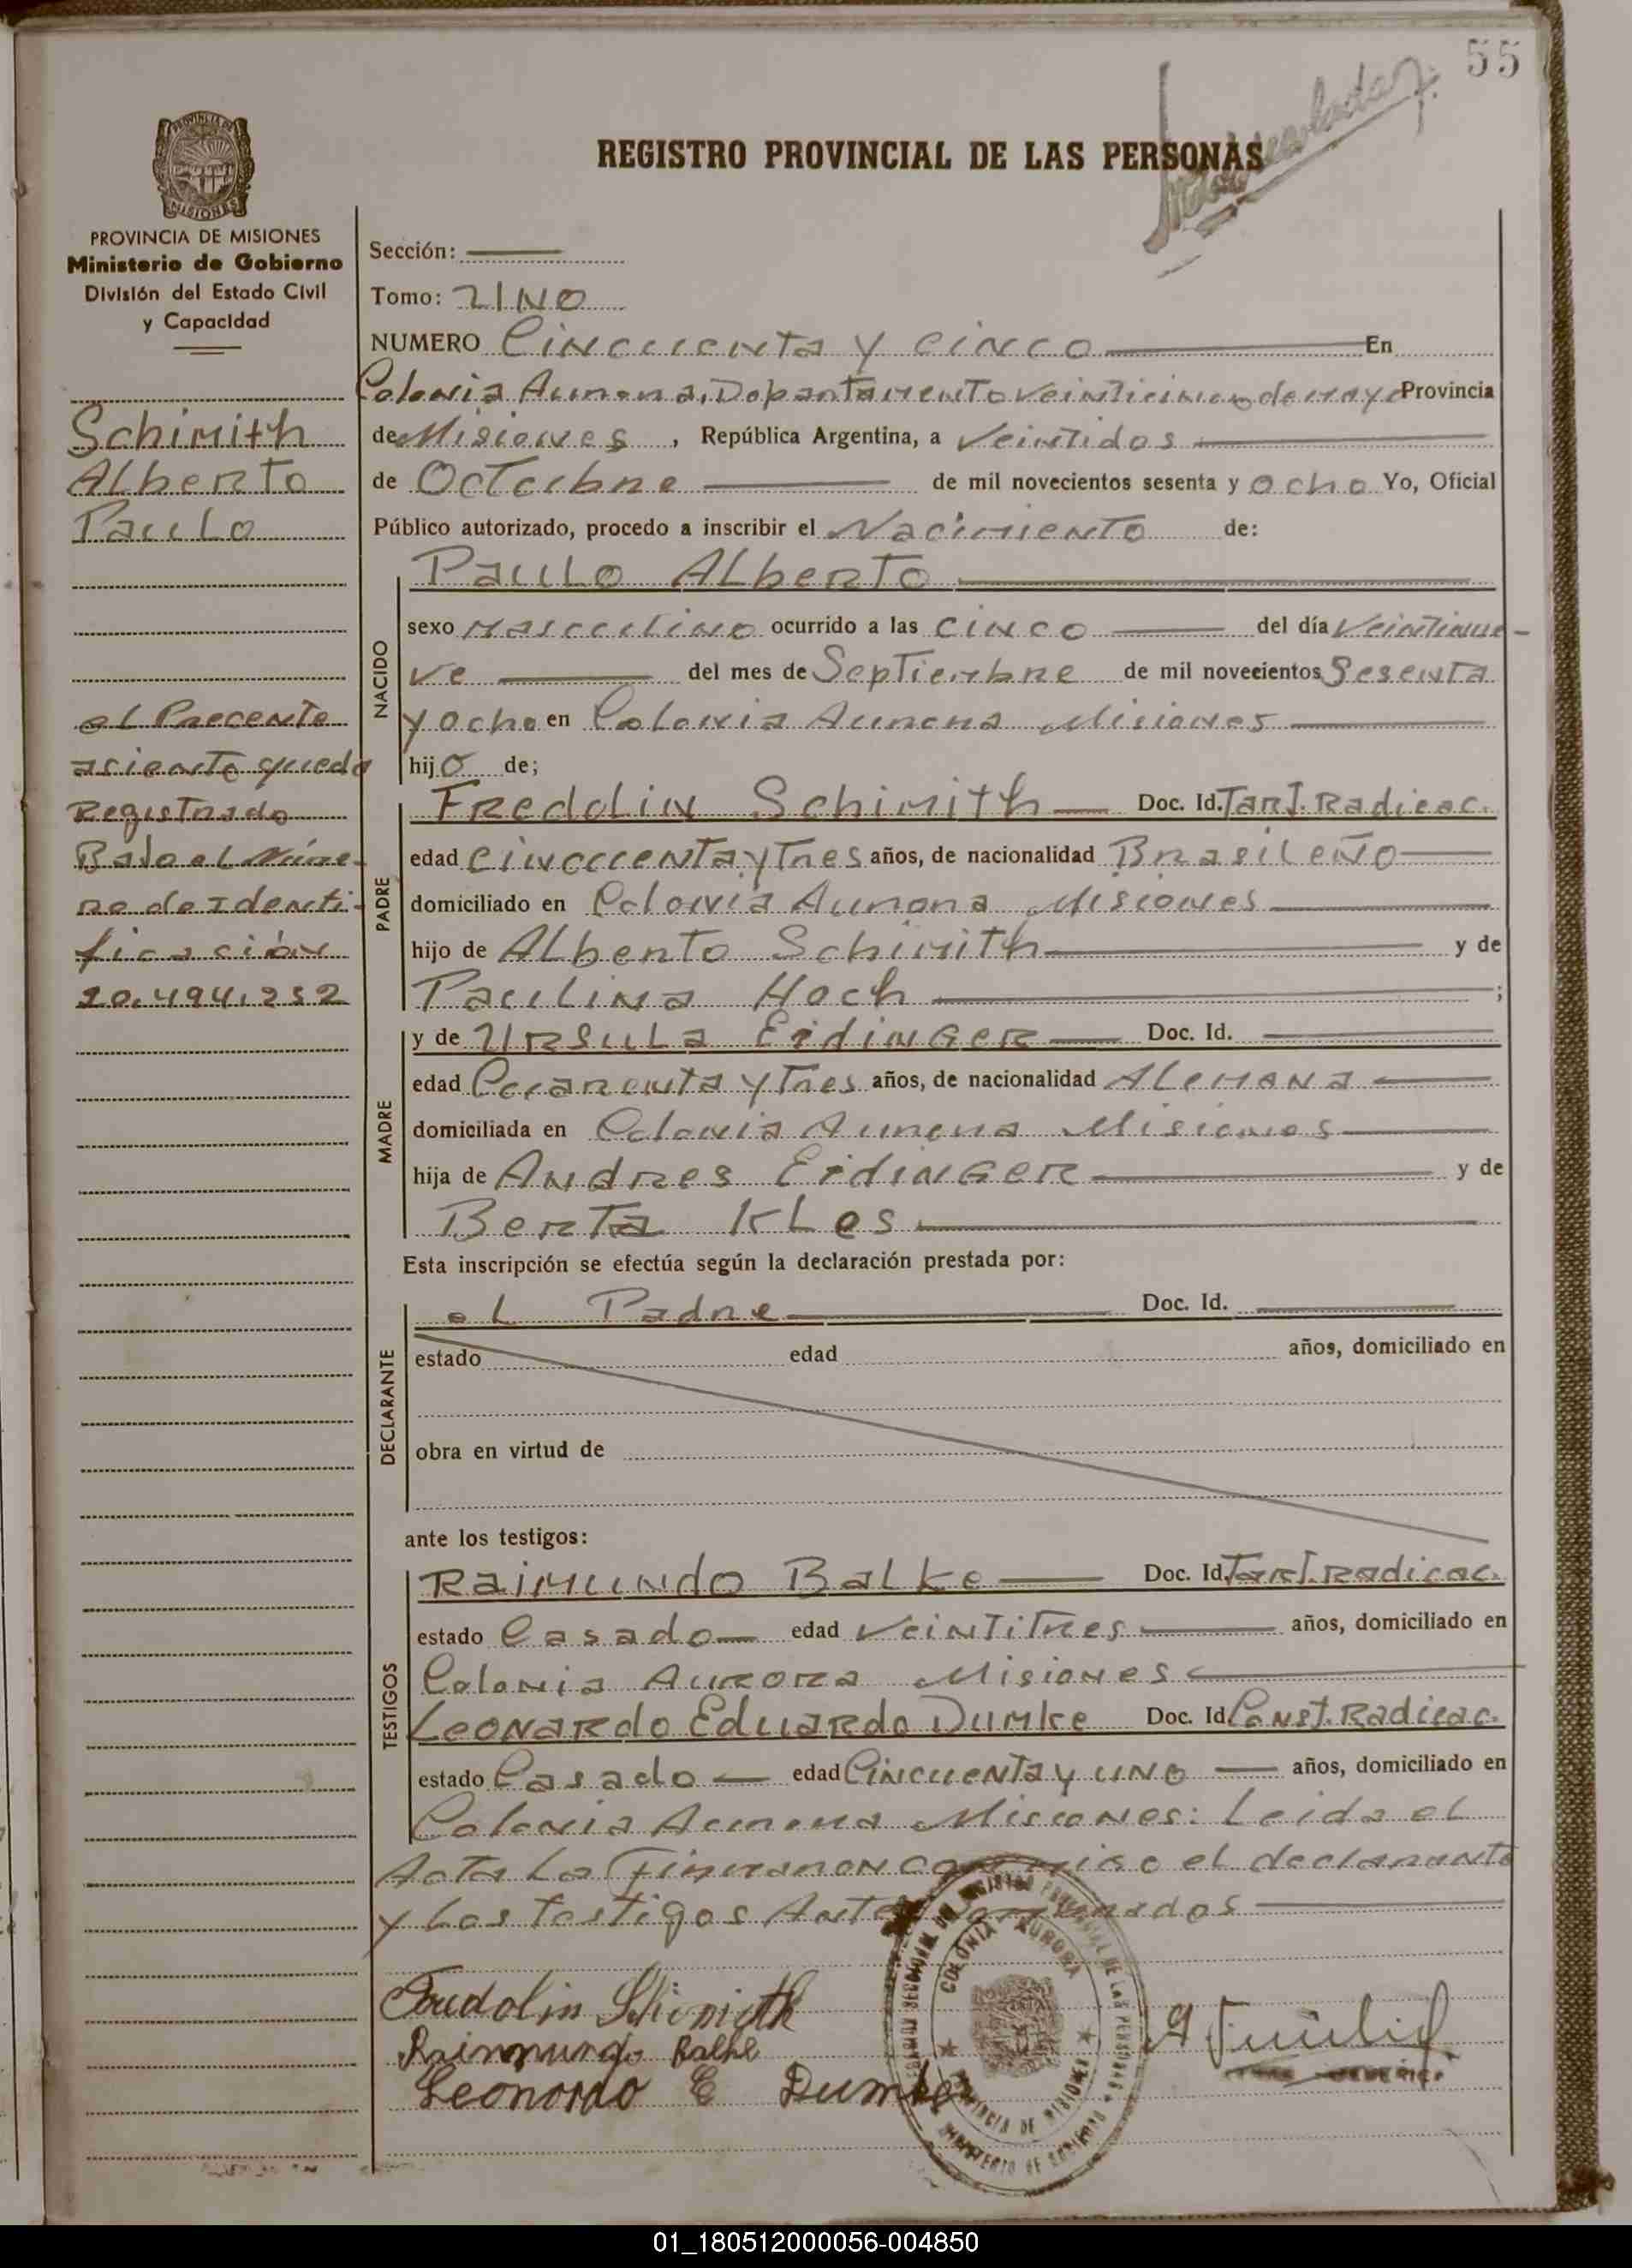 55
REGISTRO PROVINCIAL DE LAS PERSONAS
PROVINCIA DE MISIONES
Ministerio de Gobierno
División del Estado Civil
y Capacidad
Schimith
Alberto
Paulo
el Precente
asiento queda
Registrado
Bajo el Núme-
ro de Identi-
ficación
20.494.252
Sección:
Tomo: UNO
NUMERO Cincuenta y cinco En
Colonia Aurora, Departamento Veinticinco de mayo Provincia
de Misiones, República Argentina, a Veintidos
de Octubre de mil novecientos sesenta y ocho Yo, Oficial
Público autorizado, procedo a inscribir el Nacimiento de:
NACIDO
Paulo Alberto
sexo Masculino ocurrido a las cinco del día Veintinue-
ve del mes de Septiembre de mil novecientos Sesenta
y ocho en Colonia Aurora Misiones
hijo de;
PADRE
Freddlin Schimith Doc. Id. Tarj. Radicac.
edad cincuenta y tres años, de nacionalidad Brasileño
domiciliado en Colonia Aurora Misiones
hijo de Alberto Schimith y de
Paulina Hoch ;
MADRE
y de Ursula Eidinger Doc. Id.
edad Cuarenta y tres años, de nacionalidad Alemana
domiciliada en Colonia Aurora Misiones
hija de Andres Eidinger y de
Berta Kles
Esta inscripción se efectúa según la declaración prestada por:
DECLARANTE
el Padre Doc. Id.
estado edad años, domiciliado en
obra en virtud de
ante los testigos:
TESTIGOS
Raimundo Balke Doc. Id. Tarj. Radicac.
estado Casado edad Veintitres años, domiciliado en
Colonia Aurora Misiones
Leonardo Eduardo Dumke Doc. Id. Const. Radicac.
estado Casado edad Cincuenta y uno años, domiciliado en
Colonia Aurora Misiones: Leida el
Acta La Firmaron conmigo el declarante
y Los testigos Antes
Schimith
Raimundo Balke
Leonardo E Dumke
COLONIA AURORA
PROVINCIA DE MISIONES
MINISTERIO DE GOBIERNO
01_180512000056-004850